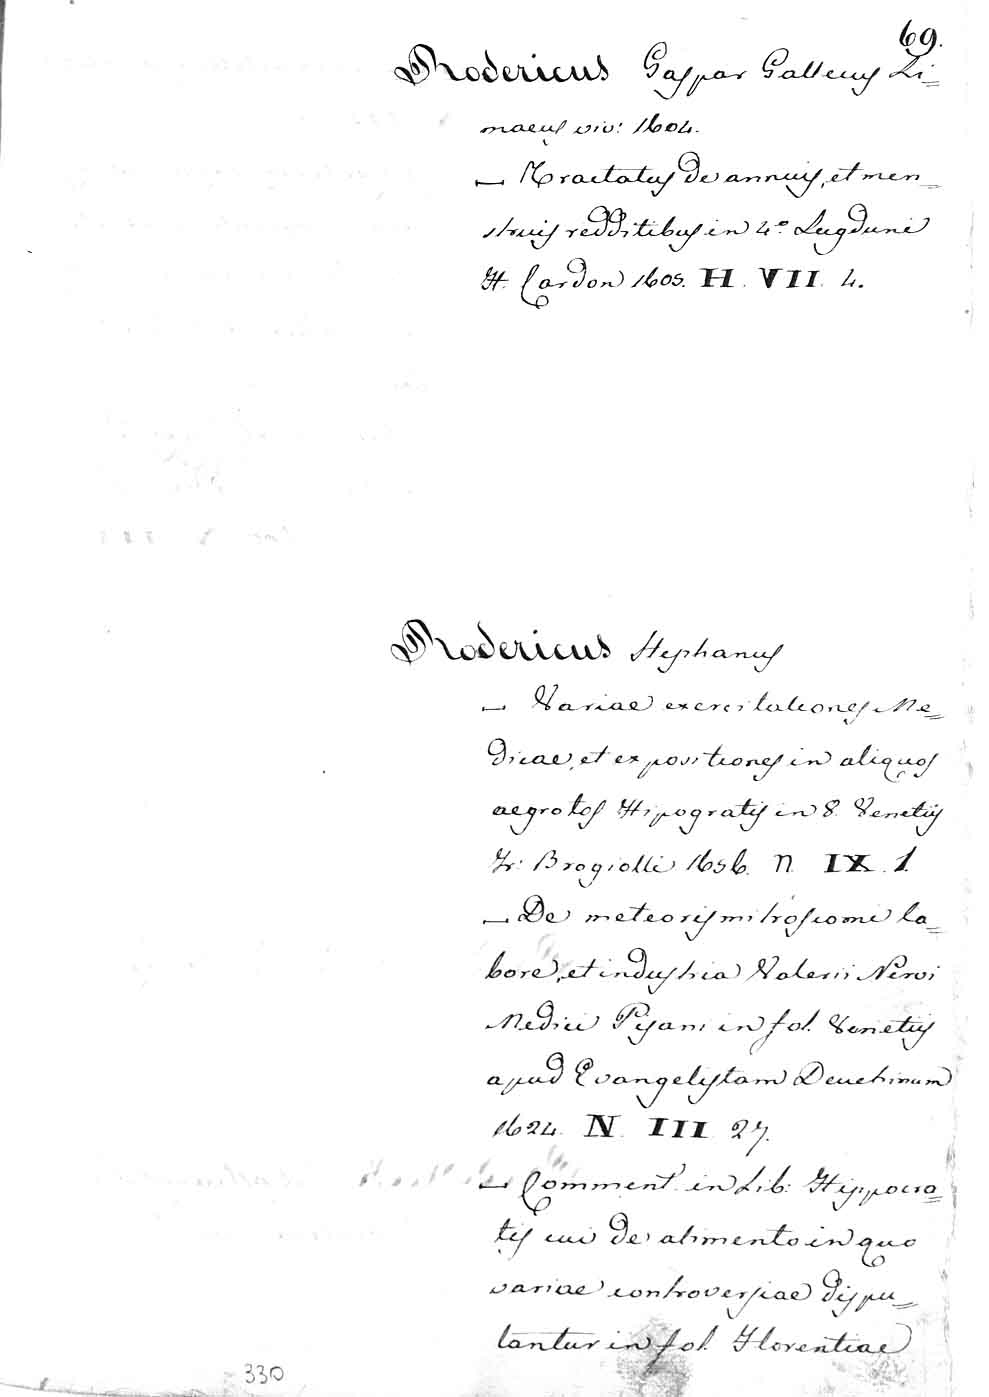 69.
Rodericus Gaspar Gallecus Li=
maeus viv: 1604.
— Tractatus de annuis, et men_
struis redditibus in 4.º Lugduni
H. Cardon 1605. H. VII. 4.
Rodericus Stephanus
— Variae exercitationes Me=
dicae, et expositiones in aliquos
aegrotos Hipogratis in 8. Venetiis
Fr: Brogiolli 1656. N. IX. 1.
— De meteoris microscomi la=
bore, et industria Valerii Nervi
Medici Pisani in fol. Venetiis
apud Evangelistam Deuchinum
1624. N. III. 27.
— Comment. in Lib: Hippocra=
tis cui de alimento in quo
variae controversiae dispu=
tantur in fol. Florentiae
330